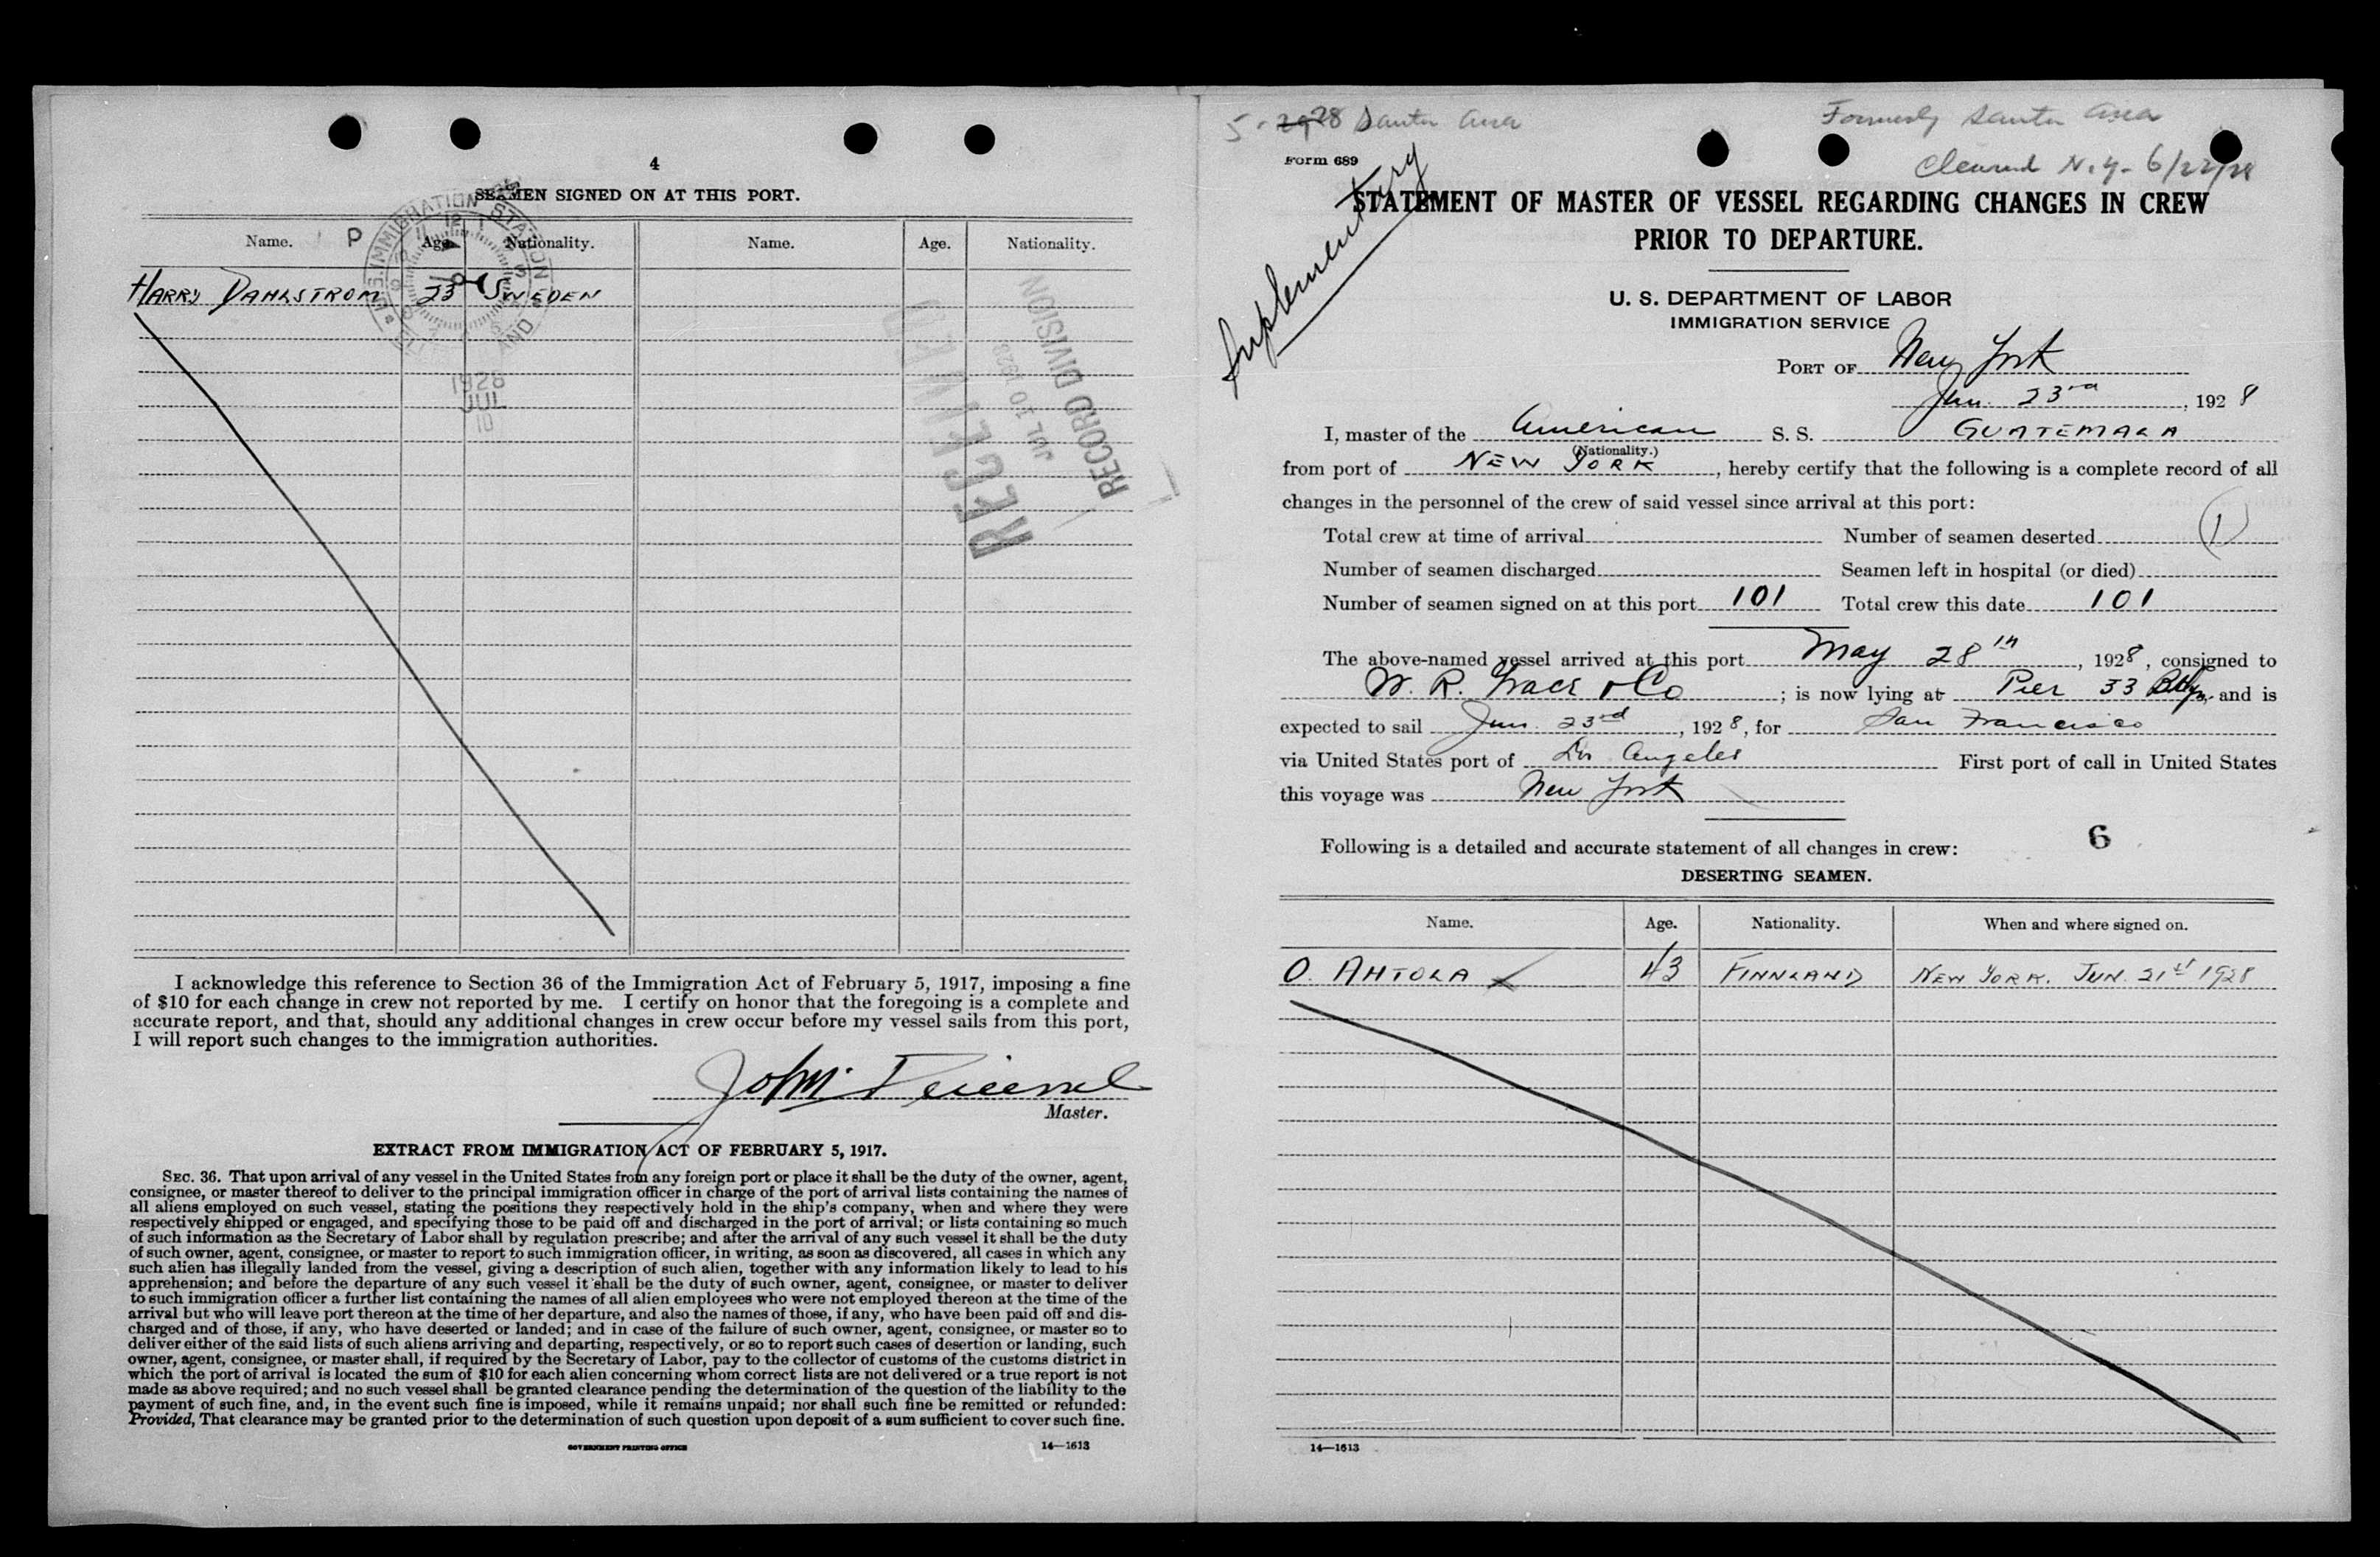 4
SEAMEN SIGNED ON AT THIS PORT.
Name. P Age. Nationality. Name. Age. Nationality.
HARRY DAHLSTROM 23 SWEDEN
IMMIGRATION STATION
1928
JUL
10
RECEIVED
JUL 10 1928
RECORD DIVISION
I acknowledge this reference to Section 36 of the Immigration Act of February 5, 1917, imposing a fine
of $10 for each change in crew not reported by me. I certify on honor that the foregoing is a complete and
accurate report, and that, should any additional changes in crew occur before my vessel sails from this port,
I will report such changes to the immigration authorities.
John
Master.
EXTRACT FROM IMMIGRATION ACT OF FEBRUARY 5, 1917.
SEC. 36. That upon arrival of any vessel in the United States from any foreign port or place it shall be the duty of the owner, agent,
consignee, or master thereof to deliver to the principal immigration officer in charge of the port of arrival lists containing the names of
all aliens employed on such vessel, stating the positions they respectively hold in the ship's company, when and where they were
respectively shipped or engaged, and specifying those to be paid off and discharged in the port of arrival; or lists containing so much
of such information as the Secretary of Labor shall by regulation prescribe; and after the arrival of any such vessel it shall be the duty
of such owner, agent, consignee, or master to report to such immigration officer, in writing, as soon as discovered, all cases in which any
such alien has illegally landed from the vessel, giving a description of such alien, together with any information likely to lead to his
apprehension; and before the departure of any such vessel it shall be the duty of such owner, agent, consignee, or master to deliver
to such immigration officer a further list containing the names of all alien employees who were not employed thereon at the time of the
arrival but who will leave port thereon at the time of her departure, and also the names of those, if any, who have been paid off and dis-
charged and of those, if any, who have deserted or landed; and in case of the failure of such owner, agent, consignee, or master so to
deliver either of the said lists of such aliens arriving and departing, respectively, or so to report such cases of desertion or landing, such
owner, agent, consignee, or master shall, if required by the Secretary of Labor, pay to the collector of customs of the customs district in
which the port of arrival is located the sum of $10 for each alien concerning whom correct lists are not delivered or a true report is not
made as above required; and no such vessel shall be granted clearance pending the determination of the question of the liability to the
payment of such fine, and, in the event such fine is imposed, while it remains unpaid; nor shall such fine be remitted or refunded:
Provided, That clearance may be granted prior to the determination of such question upon deposit of a sum sufficient to cover such fine.
GOVERNMENT PRINTING OFFICE 14—1613
5-2928 Santa Ana Formerly Santa Ana
Cleared N.Y. 6/22/28
Form 689
Suplementary
STATEMENT OF MASTER OF VESSEL REGARDING CHANGES IN CREW
PRIOR TO DEPARTURE.
U. S. DEPARTMENT OF LABOR
IMMIGRATION SERVICE
PORT OF New York
Jun. 23rd, 1928
I, master of the American S. S. GUATEMALA
(Nationality.)
from port of NEW YORK, hereby certify that the following is a complete record of all
changes in the personnel of the crew of said vessel since arrival at this port:
Total crew at time of arrival Number of seamen deserted 1
Number of seamen discharged Seamen left in hospital (or died)
Number of seamen signed on at this port 101 Total crew this date 101
The above-named vessel arrived at this port May 28th, 1928, consigned to
W. R. Grace & Co; is now lying at Pier 33 Bklyn, and is
expected to sail Jun. 23rd, 1928, for San Francisco
via United States port of Los Angeles First port of call in United States
this voyage was New York
Following is a detailed and accurate statement of all changes in crew: 6
DESERTING SEAMEN.
Name. Age. Nationality. When and where signed on.
O. AHTOLA 43 FINNLAND NEW YORK. JUN. 21st 1928
14—1613